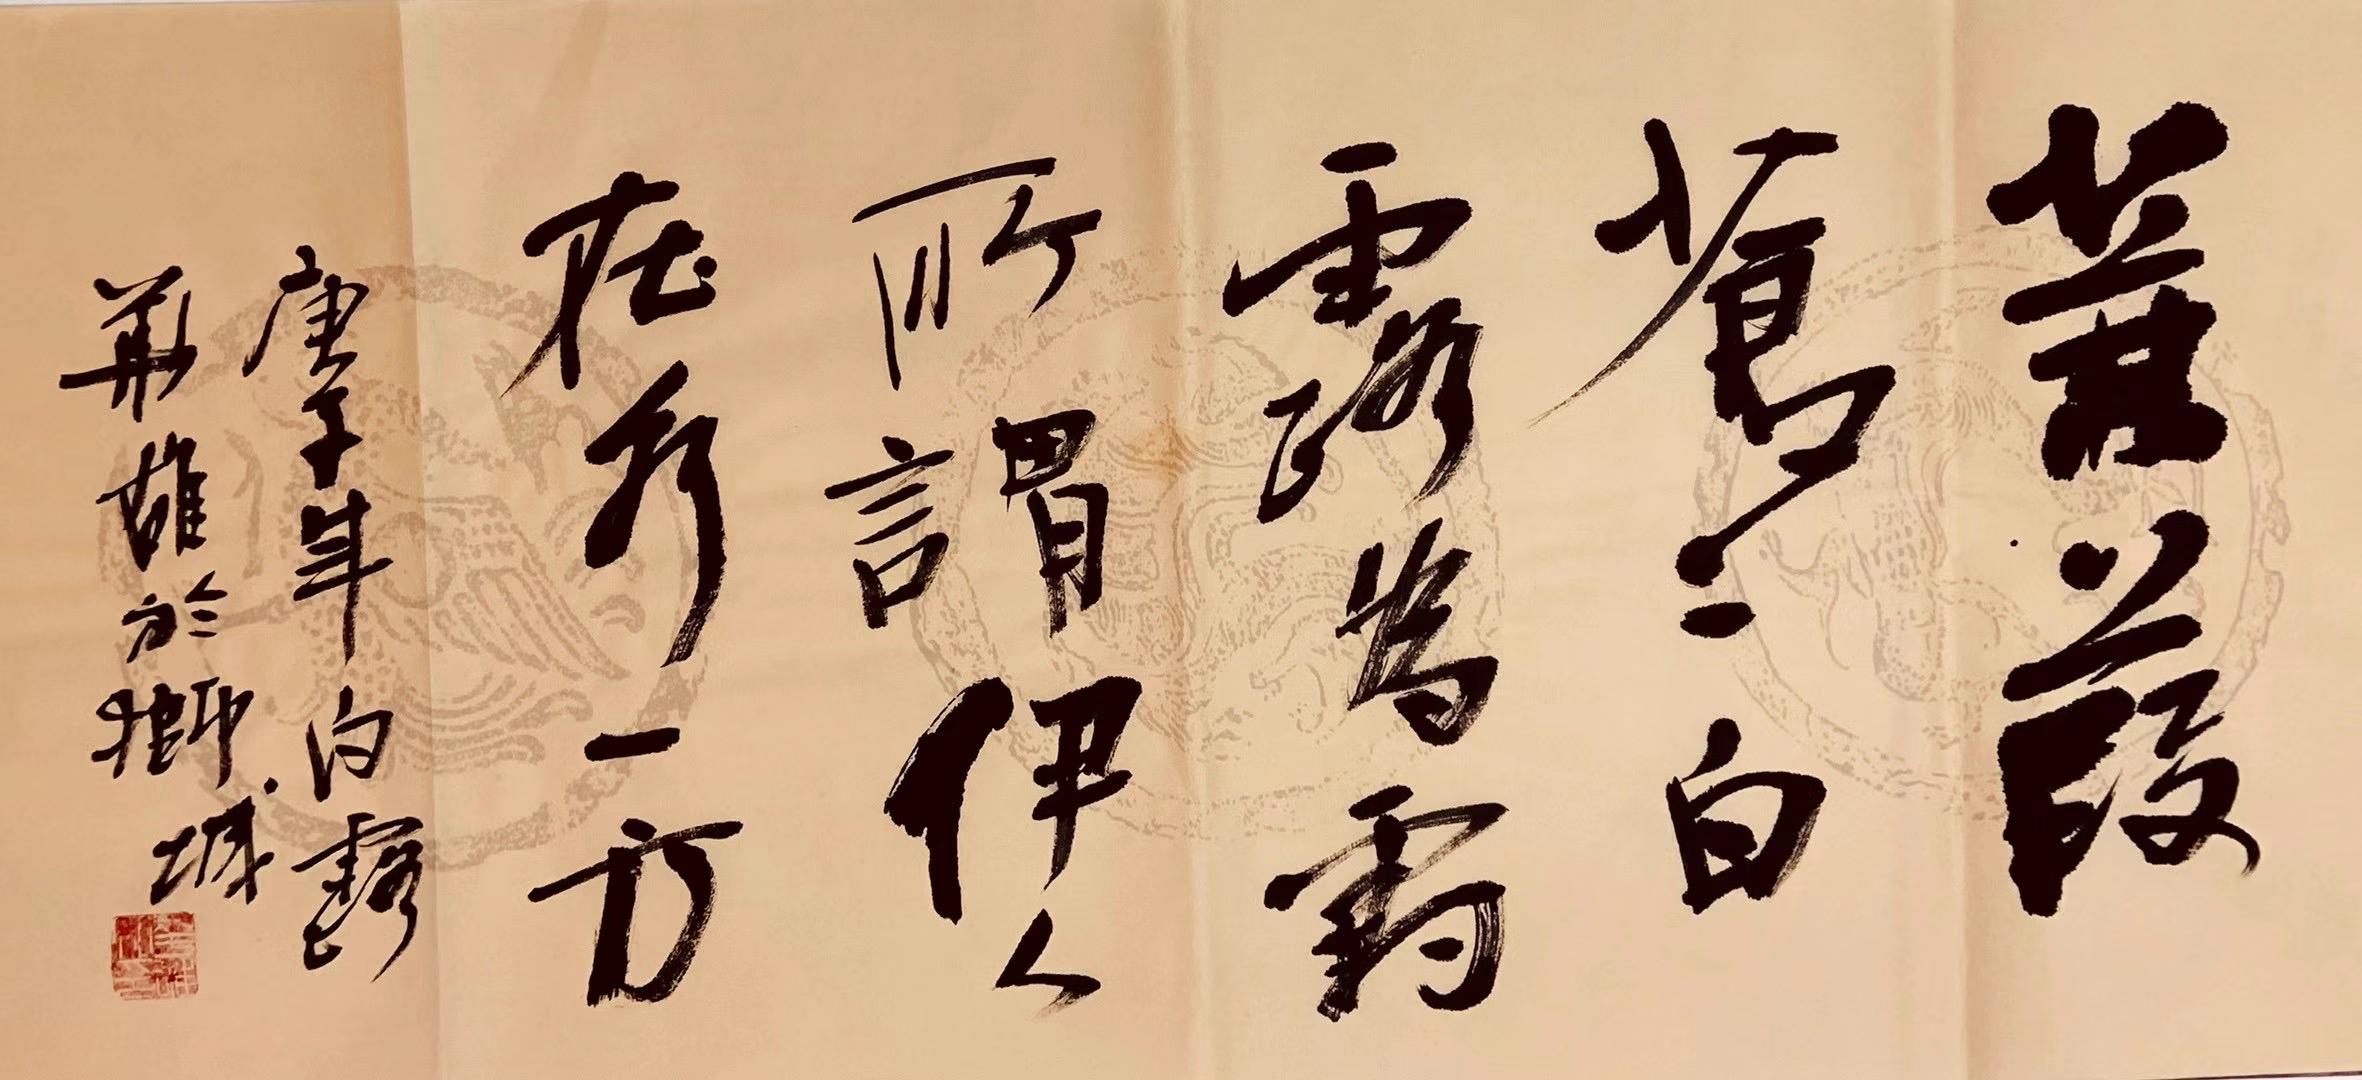 蒹葭
蒼〻白
露為霜
所謂伊人
在水一方
庚子年白露
華雄於獅城